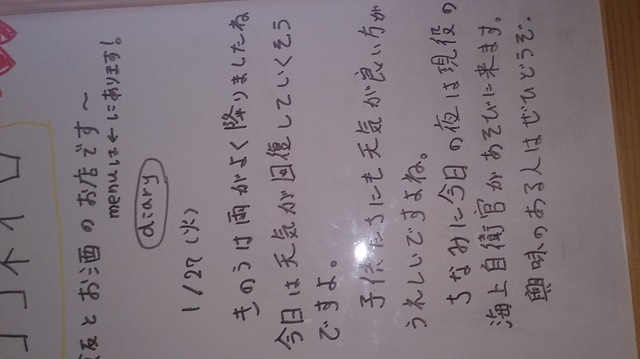 ココネイロ
飯とお酒のお店です～
menuは←にあります!
diary
1/27(火)
きのうは雨がよく降りましたね
今日は天気が回復していくそう
ですよ。
子供たちにも天気が良い方が
うれしいですよね。
ちなみに今日の夜は現役の
海上自衛官があそびに来ます。
興味のある人はぜひどうぞ.